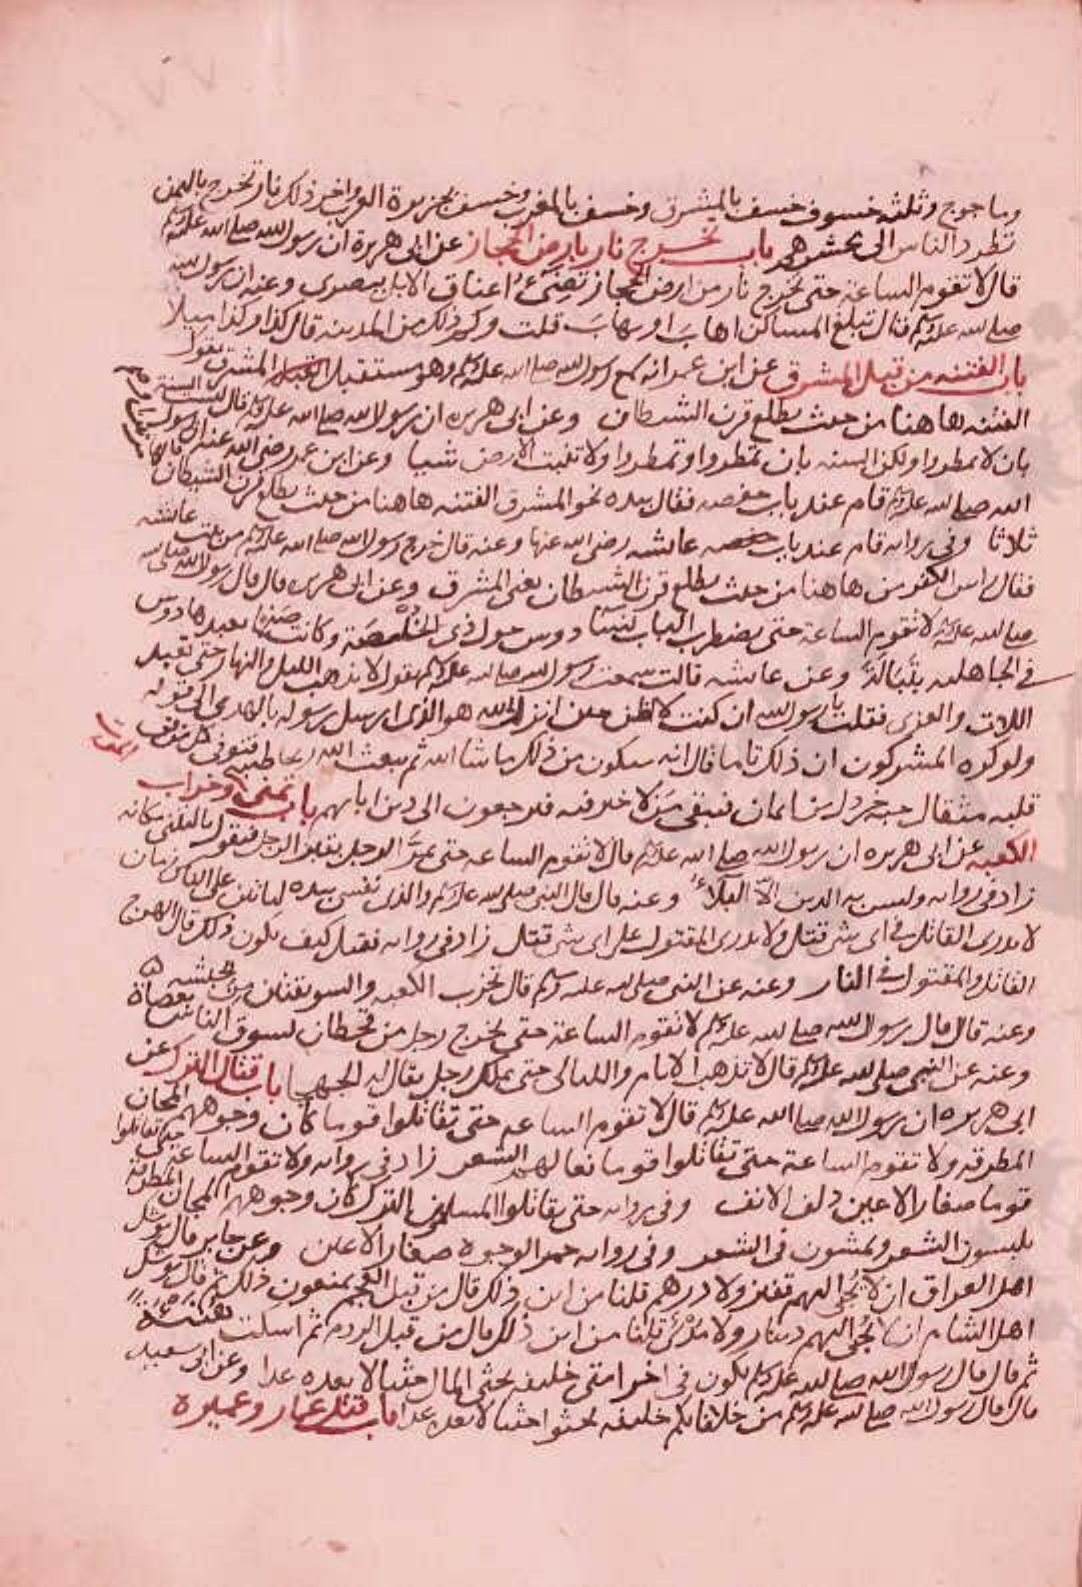 وماجوج وثلثة خسوف خسف بالمشرق وخسف بالمغرب وخسف بجزيرة العرب واخر ذلك نار تخرج باليمن
تطرد الناس الى محشرهم باب تخرج نار بارض الحجاز عن ابى هريرة ان رسول الله صلى الله عليه وسلم
قال لا تقوم الساعة حتى تخرج نار من ارض الحجاز تضىء اعناق الابل ببصرى وعنه ان رسول الله
صلى الله عليه وسلم قال تبلغ المساكن اهاب او يهاب قلت وكم ذلك من المدينه قال كذا وكذا ميلا
باب الفتنه من قبل المشرق عن ابن عمر انه سمع رسول الله صلى الله عليه وسلم وهو مستقبل المشرق يقول
الفتنه هاهنا من حيث يطلع قرن الشيطان وعن ابى هريره ان رسول الله صلى الله عليه وسلم قال ليست السنة
بان لا تمطروا ولكن السنه بان تمطروا وتمطروا ولا تنبت الارض شيا وعن ابن عمر رضى الله عنه ان رسول
الله صلى الله عليه وسلم قام عند باب حفصه فقال بيده نحو المشرق الفتنه هاهنا من حيث يطلع قرن الشيطان
ثلاثا وفى روايه قام عند باب عايشه رضى الله عنها وعنه قال خرج رسول الله صلى الله عليه وسلم من بيت عائشه
فقال راس الكفر من هاهنا من حيث يطلع قرن الشيطان يعنى المشرق وعن ابى هريره قال قال رسول الله
صلى الله عليه وسلم لا تقوم الساعة حتى يضطرب اليات نساء دوس حول ذى الخلصة وكانت صنما يعبدها دوس
فى الجاهليه بتبالة وعن عايشه قالت سمعت رسول الله صلى الله عليه وسلم يقول لا يذهب الليل والنهار حتى تعبد
اللات والعزى فقلت يا رسول الله ان كنت لاظن حين انزل الله هو الذى ارسل رسوله بالهدى الى قوله
ولو كره المشركون ان ذلك تاما قال انه سيكون من ذلك ما شا الله ثم يبعث الله ريحا طيبه فتوفى كل من فى
قلبه مثقال حبة خردل من ايمان فيبقى من لا خير فيه فيرجعون الى دين ابايهم باب تمنى وخراب
الكعبه عن ابى هريره ان رسول الله صلى الله عليه وسلم قال لا تقوم الساعه حتى يمر الرجل بقبر الرجل فيقول يا ليتنى مكانه
زاد فى روايه وليس به الدين الا البلاء وعنه قال قال النبى صلى الله عليه وسلم والذى نفسى بيده لياتين على الناس زمان
لا يدرى القاتل فى اى شى قتل ولا يدرى المقتول على اى شى قتل زاد فى روايه فقيل كيف يكون ذلك قال الهرج
القاتل والمقتول فى النار وعنه عن النبى صلى الله عليه وسلم قال يخرب الكعبه ذو السويقتين من الحبشه
وعنه قال قال رسول الله صلى الله عليه وسلم لا تقوم الساعة حتى يخرج رجل من قحطان يسوق الناس بعصاه
وعنه عن النبى صلى الله عليه وسلم قال لا تذهب الايام والليالى حتى يملك رجل يقال له الجهجا باب قتال الترك عن
ابى هريره ان رسول الله صلى الله عليه وسلم قال لا تقوم الساعه حتى تقاتلوا قوما كان وجوههم المجان
المطرقه ولا تقوم الساعة حتى تقاتلوا قوما نعالهم الشعر زاد فى روايه ولا تقوم الساعة حتى تقاتلوا
قوما صغار الاعين ذلف الانف وفى روايه حتى يقاتلوا المسلمون الترك كان وجوههم المجان المطرقة
يلبسون الشعر ويمشون فى الشعر وفى روايه حمر الوجوه صغار الاعين وعن جابر قال يوشك
اهل العراق ان لا يجى اليهم قفيز ولا درهم قلنا من اين ذلك قال من قبل العجم يمنعون ذلك ثم قال يوشك
اهل الشام ان لا يجى اليهم دينار ولا مدى قلنا من اين ذلك قال من قبل الروم ثم اسكت هنية
ثم قال قال رسول الله صلى الله عليه وسلم يكون فى اخر امتى خليفه يحثى المال حثيا لا يعده عدا وعن ابى سعيد
قال قال رسول الله صلى الله عليه وسلم من خلفايكم خليفه يحثوا حثيا لا يعده عدا باب قتل عمار وعميرة